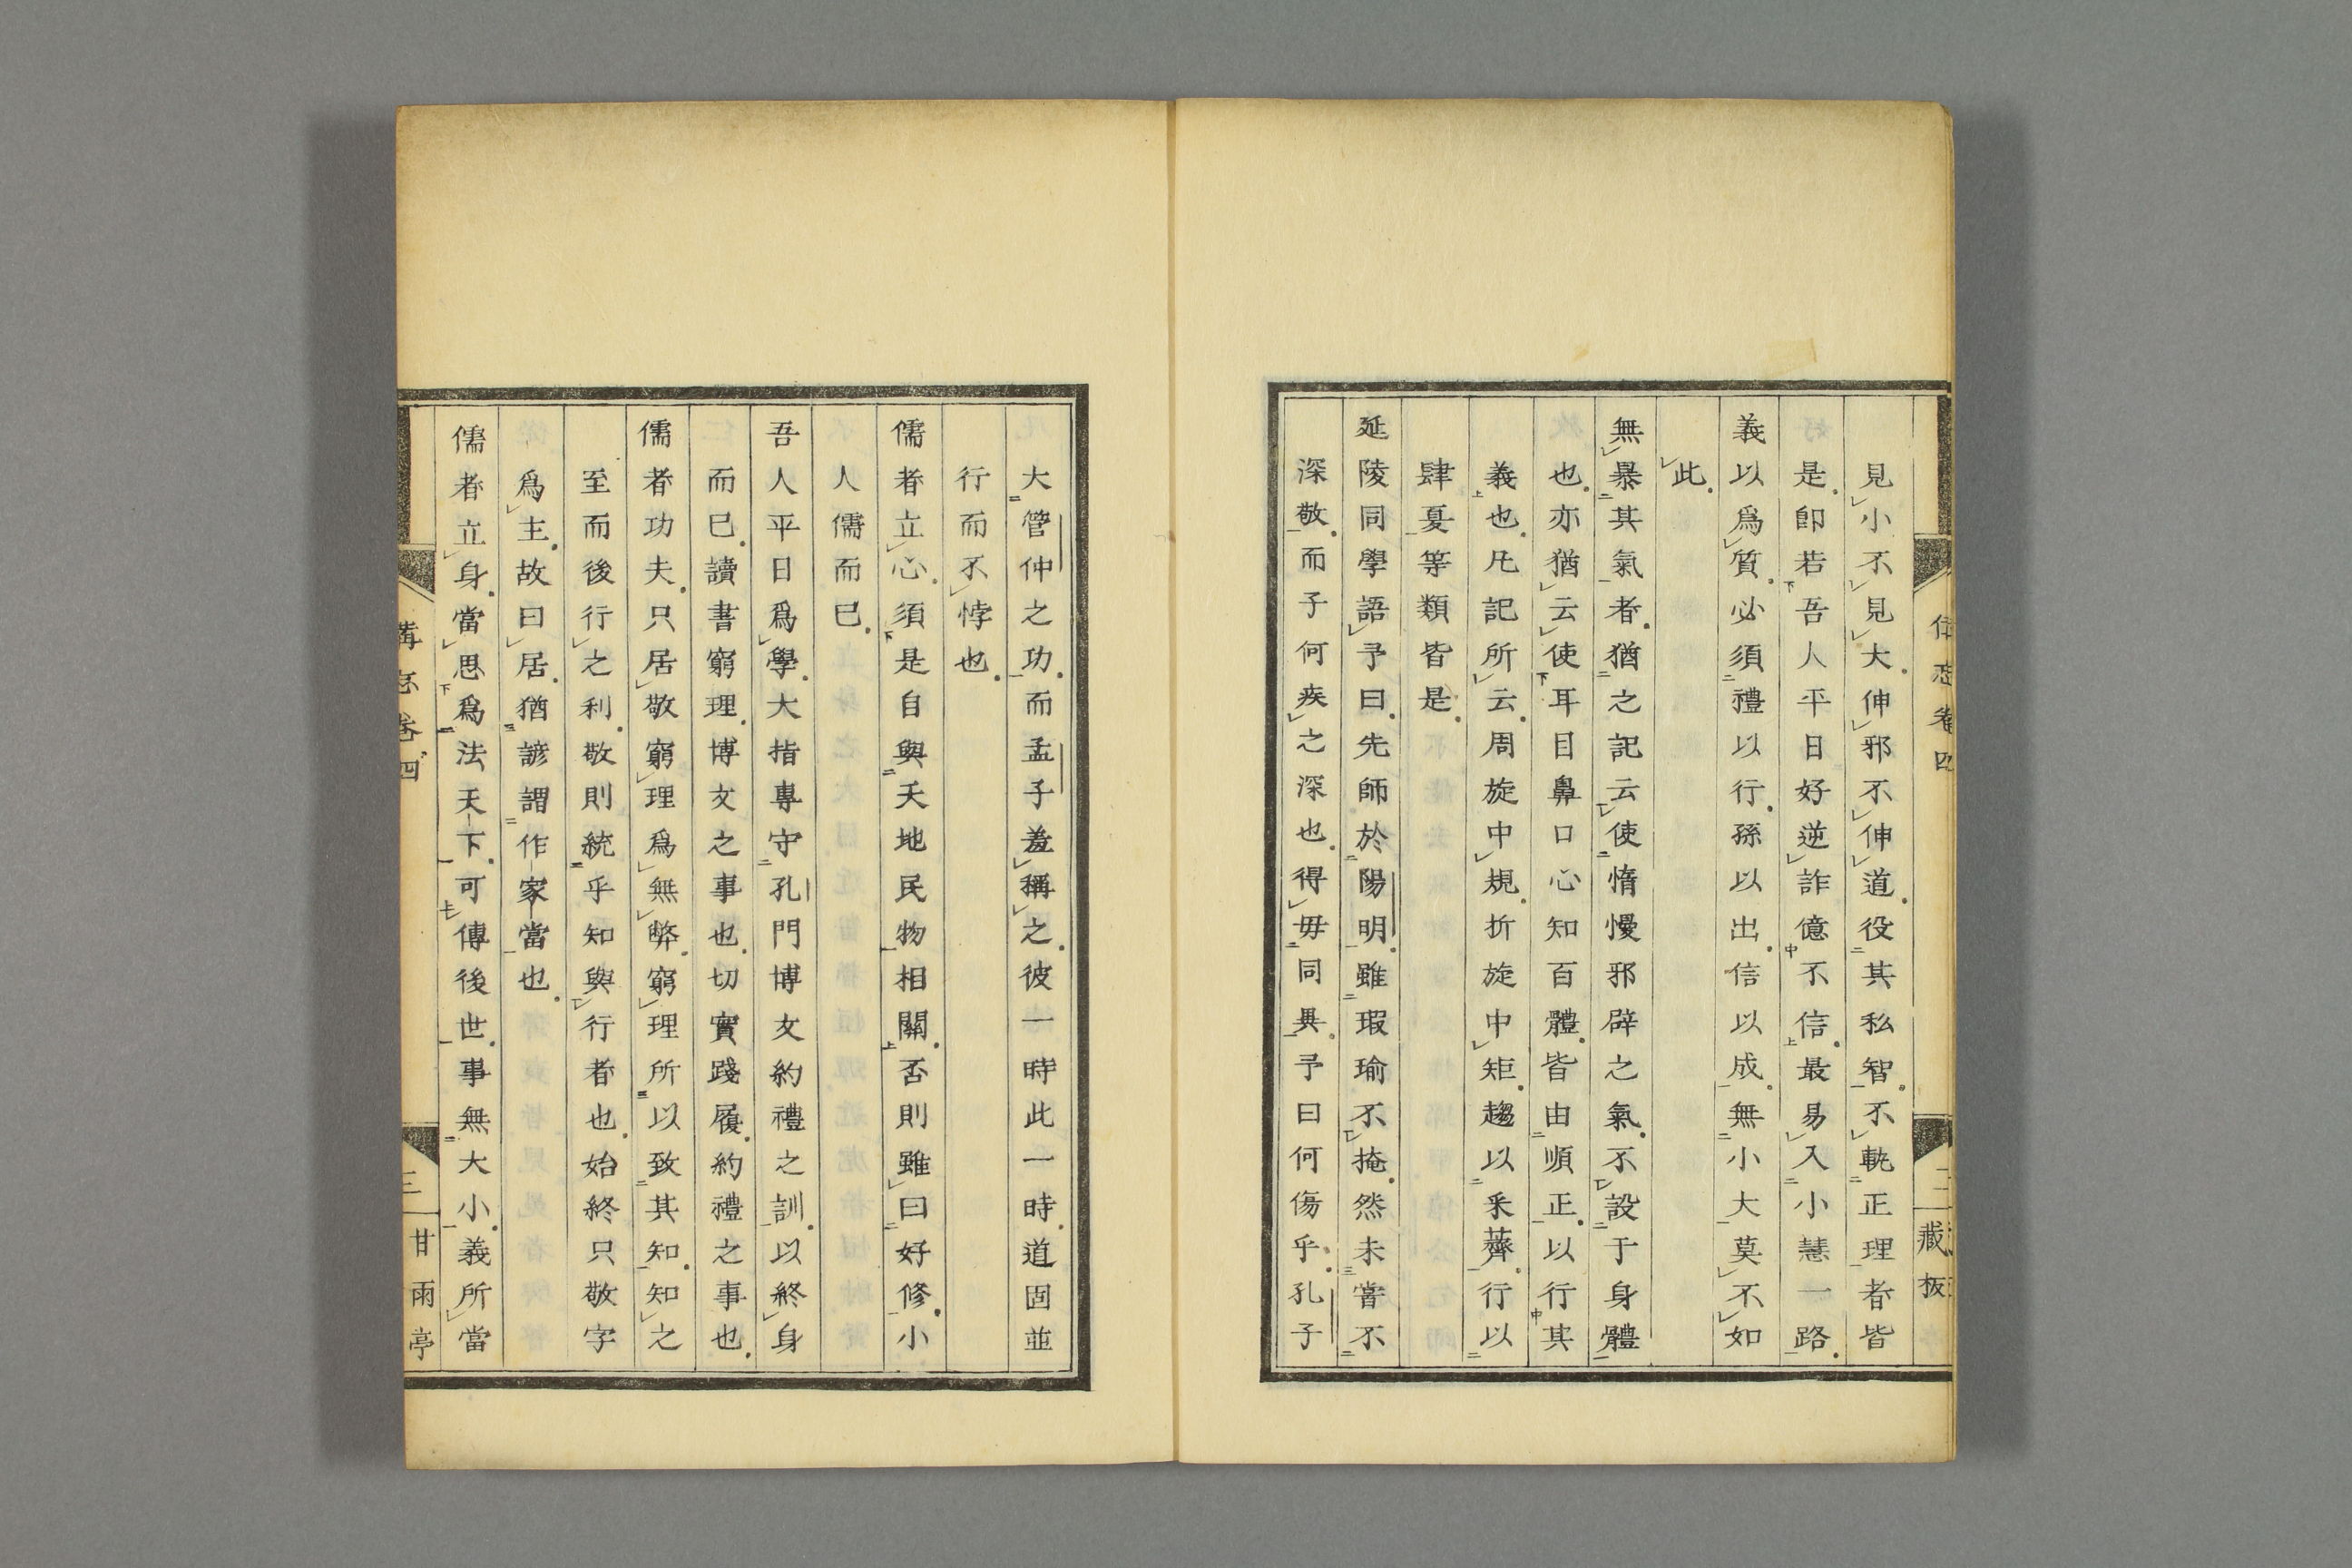 見小不見大伸邪不伸道役其私智不軌正理者皆
是卽若吾人平日好逆詐億不信最易入小慧一路
義以爲質必須禮以行孫以出信以成無小大莫不如
此
無暴其氣者猶之記云使惰慢邪辟之氣不設于身體
也亦猶云使耳目鼻口心知百體皆由順正以行其
義也凡記所云周旋中規折旋中矩趨以采薺行以
肆夏等類皆是
延陵同學語予曰先師於陽明雖瑕瑜不掩然未嘗不
深敬而子何疾之深也得毋同異予曰何傷乎孔子
大管仲之功而孟子羞稱之彼一時此一時道固並
行而不悖也
儒者立心須是自與天地民物相關否則雖曰好修小
人儒而已
吾人平日爲學大指專守孔門博文約禮之訓以終身
而已讀書窮理博文之事也切實踐履約禮之事也
儒者功夫只居敬窮理爲無弊窮理所以致其知知之
至而後行之利敬則統乎知與行者也始終只敬字
爲主故曰居猶諺謂作家當也
儒者立身當思爲法天下可傳後世事無大小義所當
卷四
三
甘雨亭
藏板